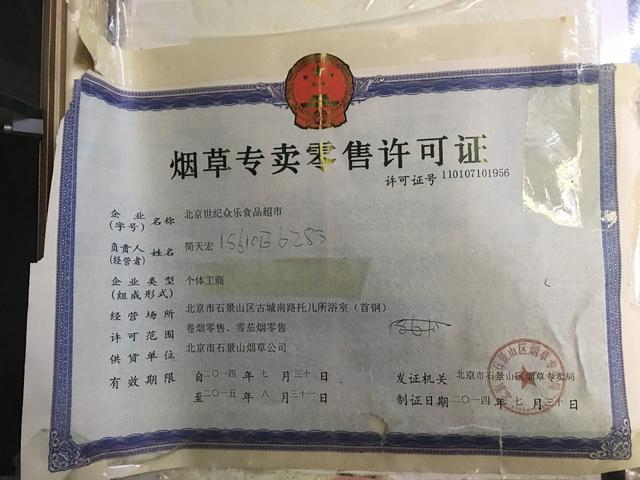 烟草专卖零售许可证
许可证号 110107101956
企业(字号)名称 北京世纪众乐食品超市
负责人(经营者)姓名 简天宏
企业类型(组成形式) 个体工商
经营场所 北京市石景山区古城南路托儿所浴室（首钢）
许可范围 卷烟零售、雪茄烟零售
供货单位 北京市石景山烟草公司
有效期限 自二〇一四年七月三十日
至二〇一五年八月三十一日
发证机关 北京市石景山区烟草专卖局
制证日期二〇一四年七月三十日